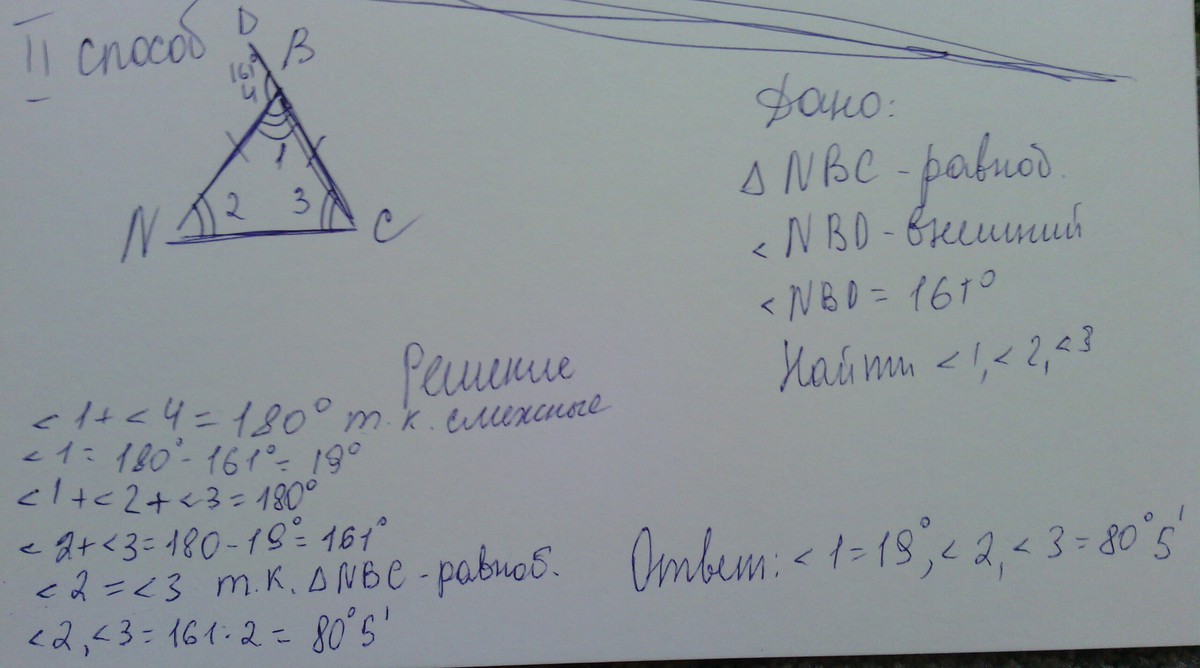 II способ
D
B
161°
4
1
2
3
N
C
Дано:
Δ NBC - равноб.
< NBD - внешний
< NBD = 161°
Найти < 1, < 2, < 3
Решение
< 1 + < 4 = 180° т.к. смежные
< 1 = 180° - 161° = 19°
< 1 + < 2 + < 3 = 180°
< 2 + < 3 = 180 - 19° = 161°
< 2 = < 3 т.к. Δ NBC - равноб.
< 2, < 3 = 161 : 2 = 80° 5'
Ответ: < 1 = 19°, < 2, < 3 = 80° 5'